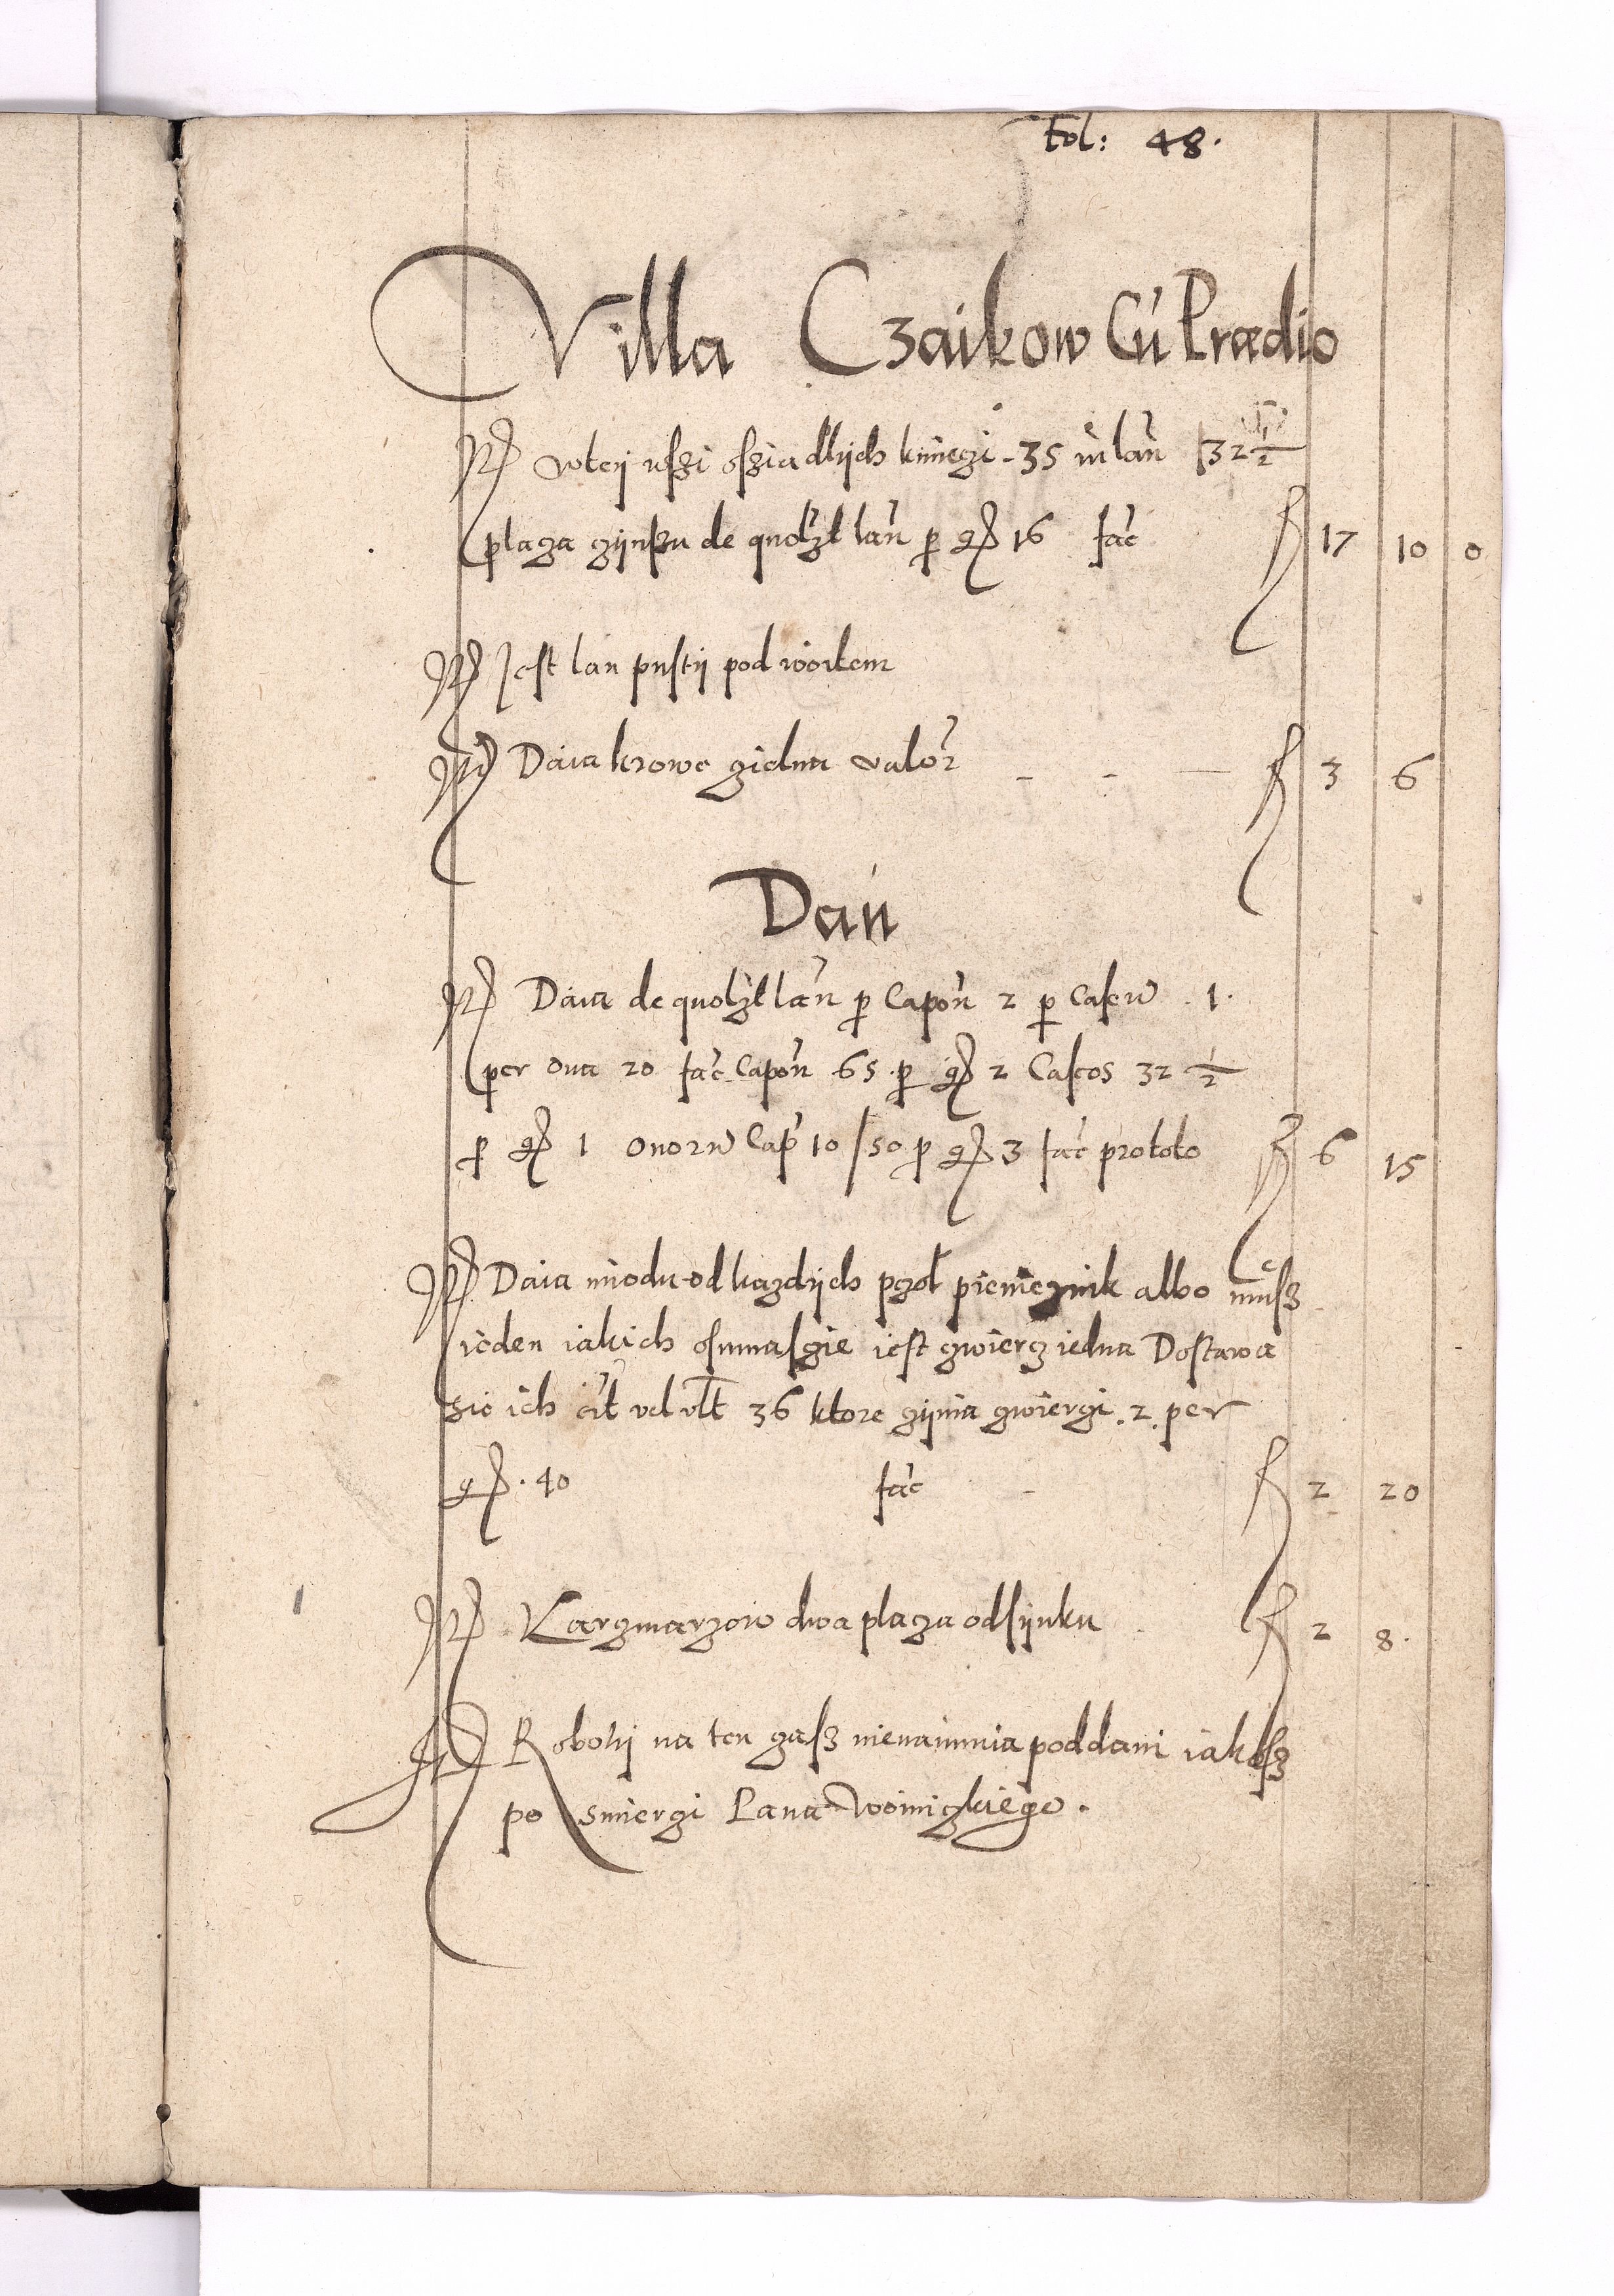 Fol: 48.
Villa Czaikow Cu Prædio
It wtey wszi osziadlych kmiezi 35 in lan 32 1/2
placza czynszu de quolzt lan p gr 16 fac f 17 10 0
It Jest lan pustij pod woitem
It Daia krowe giedna valor f 3 6
Dan
It Daia de quolzt lan p Capon 2 p Caseu 1.
per oua 20 fac Capon 65 p gr 2 Caseos 32 1/2
p gr 1 ouoru Cap 10/50 p gr 3 fac pro toto f 6 15
It Daia miodu od kazdych pczol pienieznik albo
ieden iakich osmnascie iest cwiercz iedna Dostawa
sie ich 36 ktore czynia cwierczi 2 per
gr 40 fac f 2 20
It Karczmarzow dwa placza od synku f 2 8.
It Roboti na ten czasz nienaimuia poddani iakosz
po smierczi Pana Woinickiego.